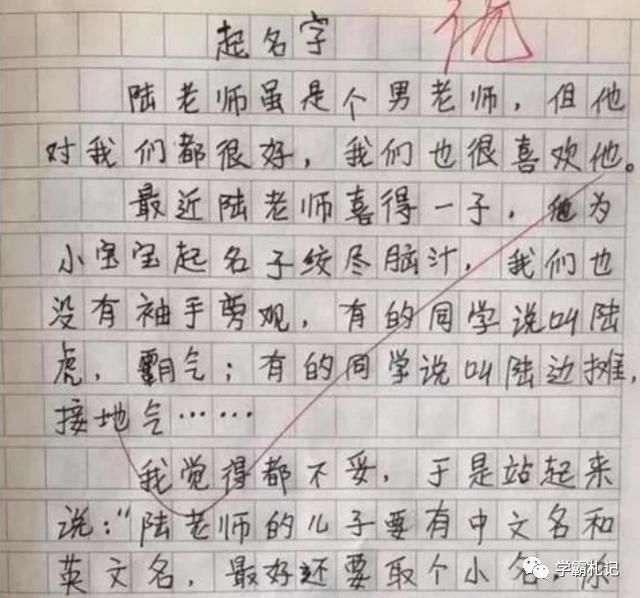 优
起名字
陆老师虽是个男老师，但他
对我们都很好，我们也很喜欢他。
最近陆老师喜得一子，他为
小宝宝起名子绞尽脑汁，我们也
没有袖手剪观，有的同学说叫陆
虎，霸气；有的同学说叫陆边摊，
接地气……
我觉得都不妥，于是站起来
说：“陆老师的儿子要有中文名和
英文名，最好还要取个小名，你
学霸札记